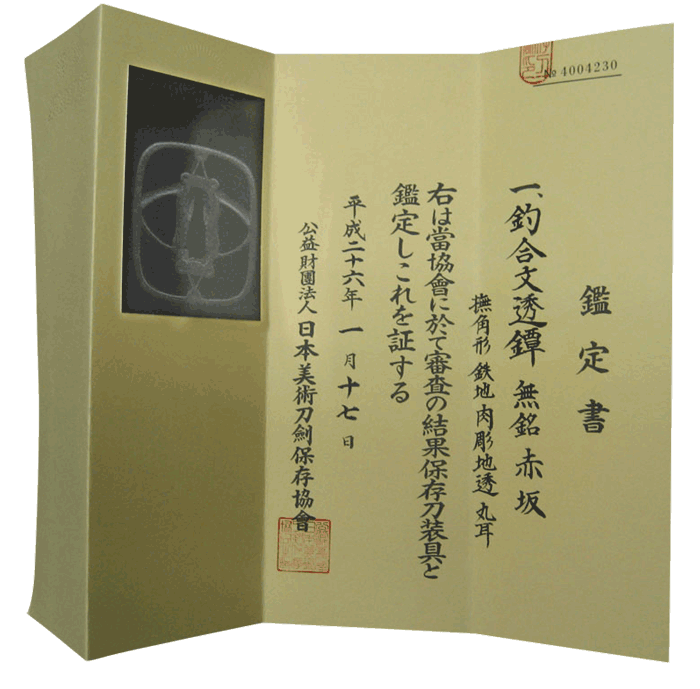 № 4004230
鑑定書
一、釣合文透鐔 無銘 赤坂
撫角形 鉄地 肉彫地透 丸耳
右は當協會に於て審査の結果保存刀装具と
鑑定しこれを証する
平成二十六年 一月十七日
公益財團法人 日本美術刀劍保存協會